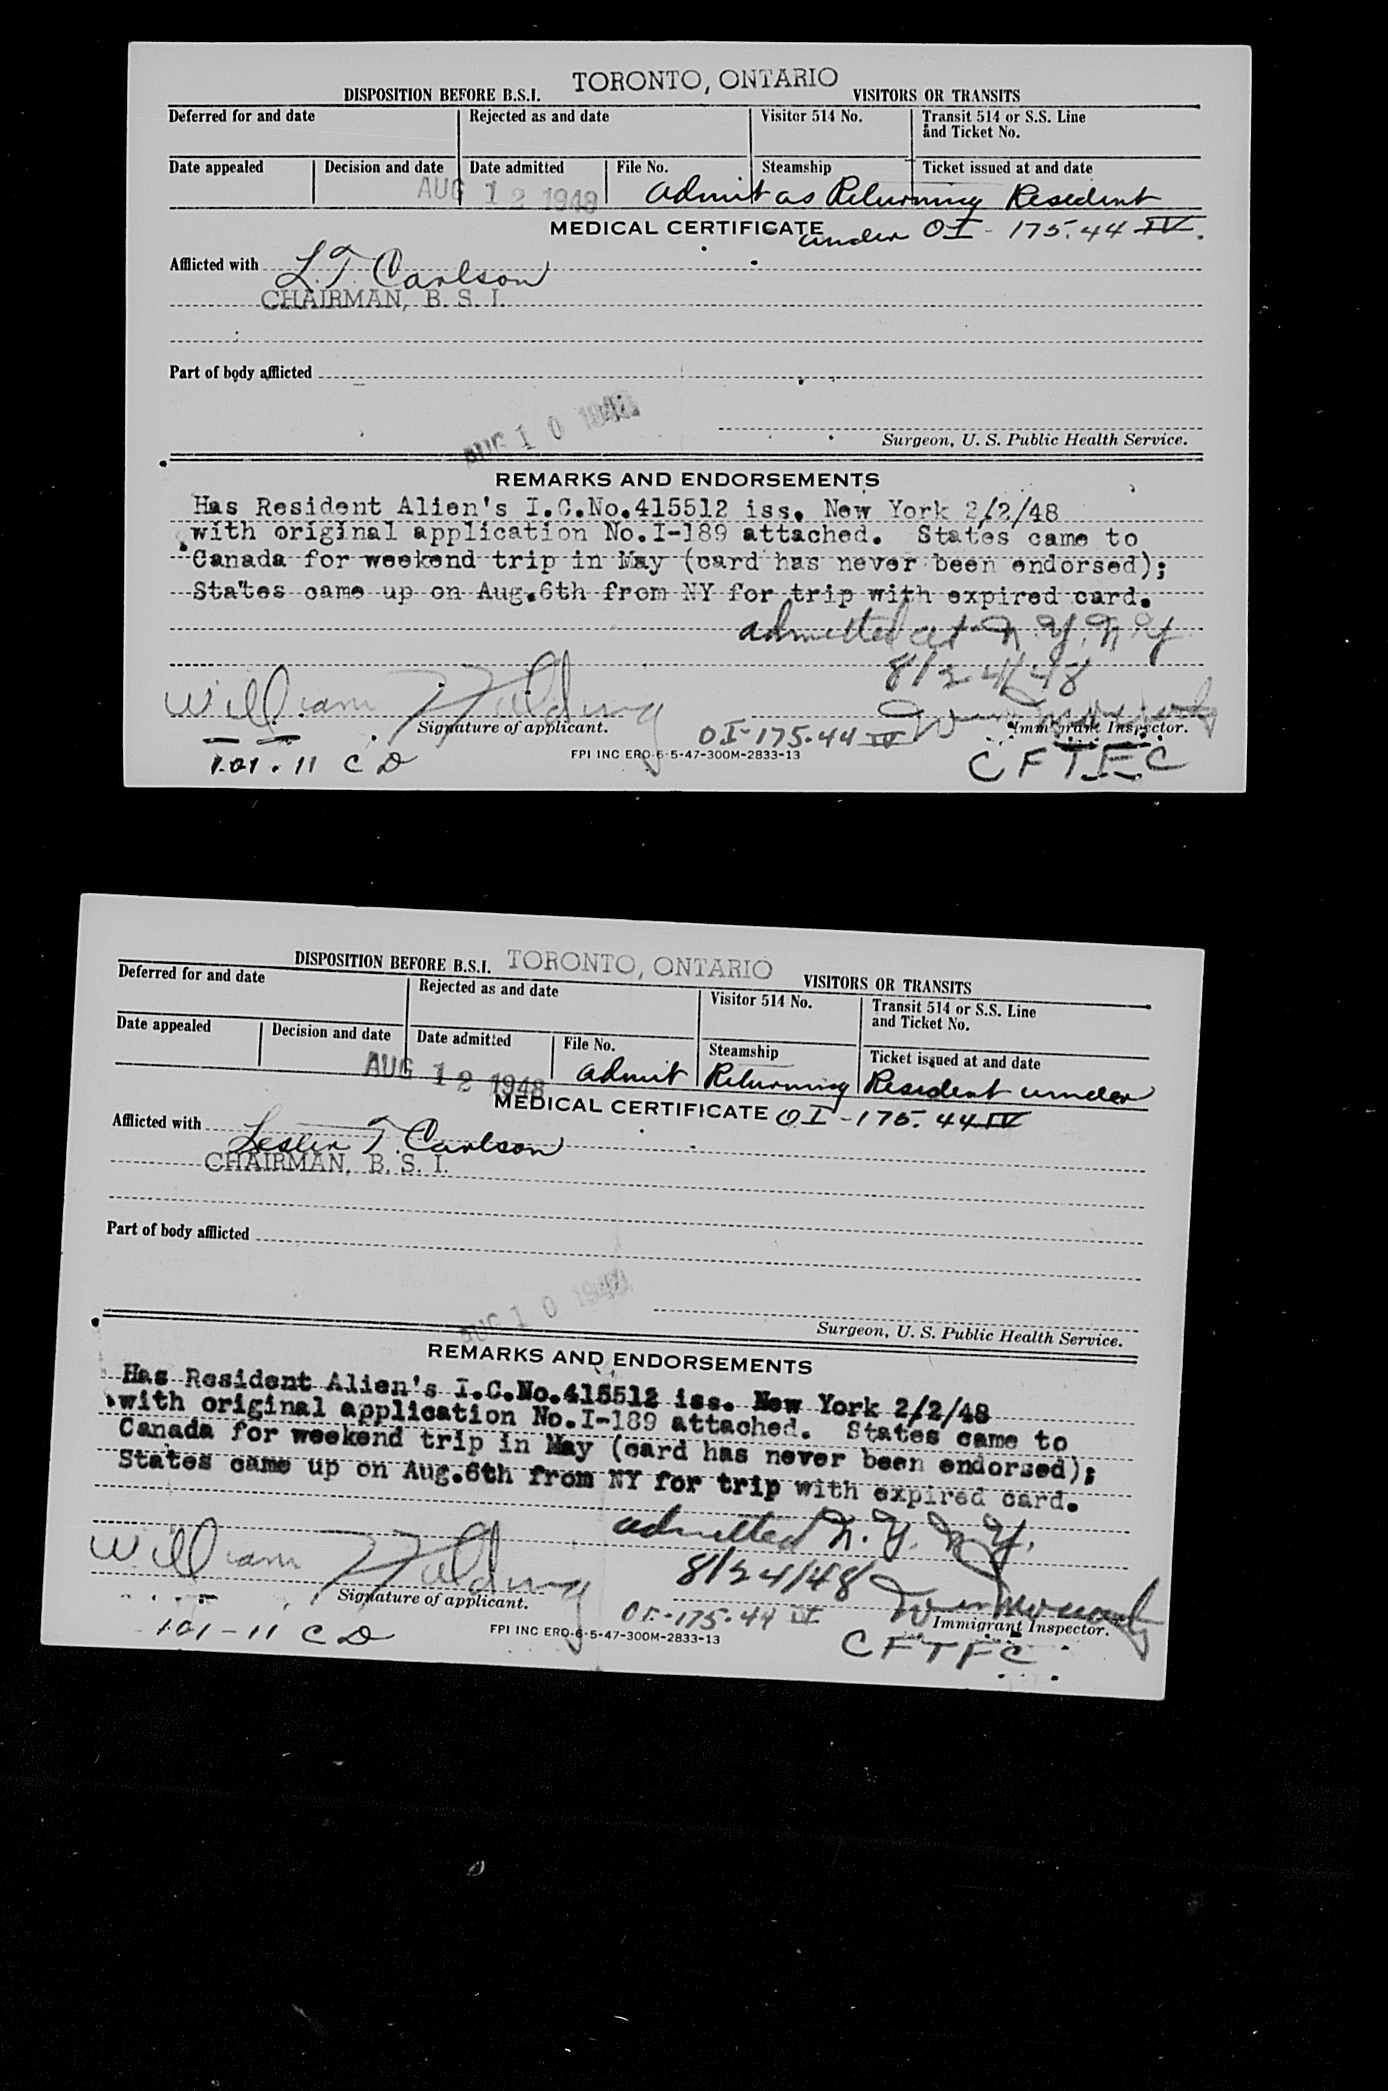 TORONTO, ONTARIO
DISPOSITION BEFORE B.S.I. VISITORS OR TRANSITS
Deferred for and date Rejected as and date Visitor 514 No. Transit 514 or S.S. Line and Ticket No.
Date appealed Decision and date Date admitted File No. Steamship Ticket issued at and date
AUG 12 1948 admit as Returning Resident
MEDICAL CERTIFICATE under OI-175.44 IV.
Afflicted with L.T. Carlson
CHAIRMAN, B. S. I.
Part of body afflicted
AUG 10 1948
Surgeon, U. S. Public Health Service.
REMARKS AND ENDORSEMENTS
Has Resident Alien's I.C.No.415512 iss. New York 2/2/48
with original application No.I-189 attached. States came to
Canada for weekend trip in May (card has never been endorsed);
States came up on Aug.6th from NY for trip with expired card.
admitted at N.Y. N.Y.
8/24/48
William Holding
Signature of applicant. OI-175.44 IV Immigrant Inspector.
101.11 CD FPI INC ERO-6-5-47-300M-2833-13 CFTFC
DISPOSITION BEFORE B.S.I. TORONTO, ONTARIO VISITORS OR TRANSITS
Deferred for and date Rejected as and date Visitor 514 No. Transit 514 or S.S. Line and Ticket No.
Date appealed Decision and date Date admitted File No. Steamship Ticket issued at and date
AUG 12 1948 admit Returning Resident under
MEDICAL CERTIFICATE OI-175.44 IV
Afflicted with Leslie T. Carlson
CHAIRMAN, B. S. I.
Part of body afflicted
AUG 10 1948
Surgeon, U. S. Public Health Service.
REMARKS AND ENDORSEMENTS
Has Resident Alien's I.C.No.415512 iss. New York 2/2/48
with original application No.I-189 attached. States came to
Canada for weekend trip in May (card has never been endorsed);
States came up on Aug.6th from NY for trip with expired card.
admitted N.Y. N.Y.
8/24/48
William Holding
Signature of applicant. OI-175.44 IV Immigrant Inspector.
101-11 CD FPI INC ERO-6-5-47-300M-2833-13 CFTFC